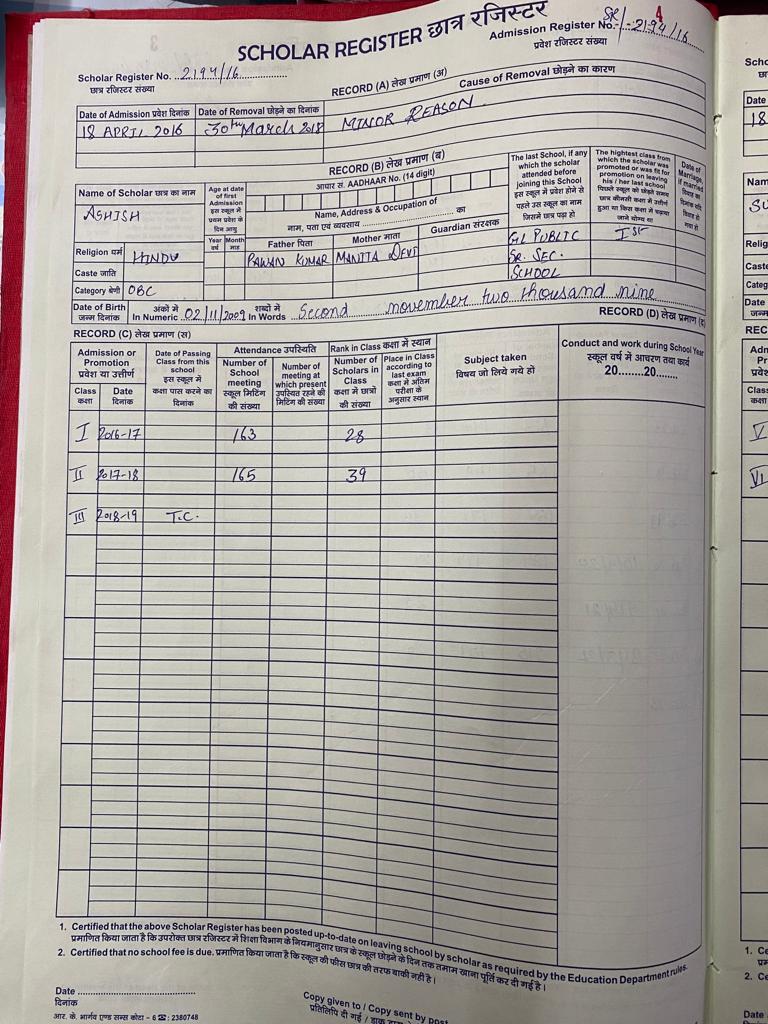 SCHOLAR REGISTER छात्र रजिस्टर
Admission Register No. SR/-2194/16
प्रवेश रजिस्टर संख्या
Scholar Register No. 2194/16
छात्र रजिस्टर संख्या
RECORD (A) लेख प्रमाण (अ)
Date of Admission प्रवेश दिनांक Date of Removal छोड़ने का दिनांक Cause of Removal छोड़ने का कारण
18 APRIL 2016 30th March 2018 MINOR REASON
RECORD (B) लेख प्रमाण (ब)
Name of Scholar छात्र का नाम
ASHISH
Age at date of first Admission
इस स्कूल में प्रथम प्रवेश के दिन आयु
Year वर्ष Month माह
आधार सं. AADHAAR No. (14 digit)
Name, Address & Occupation of
नाम, पता एवं व्यवसाय का
Father पिता Mother माता Guardian संरक्षक
PAWAN KUMAR MANITA DEVI
The last School, if any which the scholar attended before joining this School
इस स्कूल में प्रवेश होने से पहले उस स्कूल का नाम जिसमें छात्र पढ़ा हो
GL PUBLIC
SR. SEC.
SCHOOL
The highest class from which the scholar was promoted or was fit for promotion on leaving his / her last school
Ist
Date of Marriage, if married
Religion धर्म HINDU
Caste जाति
Category श्रेणी OBC
Date of Birth अंकों में शब्दों में
जन्म दिनांक In Numeric 02/11/2009 In Words Second november two thousand nine
RECORD (C) लेख प्रमाण (स) RECORD (D) लेख प्रमाण (द)
Admission or Promotion
प्रवेश या उत्तीर्ण
Class कक्षा Date दिनांक
Date of Passing Class from this school
इस स्कूल में कक्षा पास करने का दिनांक
Attendance उपस्थिति
Number of School meeting
स्कूल मिटिंग की संख्या
Number of meeting at which present
उपस्थित रहने की मिटिंग की संख्या
Rank in Class कक्षा में स्थान
Number of Scholars in Class
कक्षा में छात्रों की संख्या
Place in Class according to last exam
कक्षा में अंतिम परीक्षा के अनुसार स्थान
Subject taken
विषय जो लिये गये हों
Conduct and work during School Year
स्कूल वर्ष में आचरण तथा कार्य
20........20........
I 2016-17 163 28
II 2017-18 165 39
III 2018-19 T.C.
1. Certified that the above Scholar Register has been posted up-to-date on leaving school by scholar as required by the Education Department rules.
प्रमाणित किया जाता है कि उपरोक्त छात्र रजिस्टर में शिक्षा विभाग के नियमानुसार छात्र के स्कूल छोड़ने के दिन तक तमाम खाना पूर्ति कर दी गई है।
2. Certified that no school fee is due. प्रमाणित किया जाता है कि स्कूल की फीस छात्र की तरफ बाकी नहीं है।
Date
दिनांक
Copy given to / Copy sent by post
प्रतिलिपि दी गई / डाक
आर. के. भार्गव एण्ड सन्स कोटा – 6 ☎ : 2380748